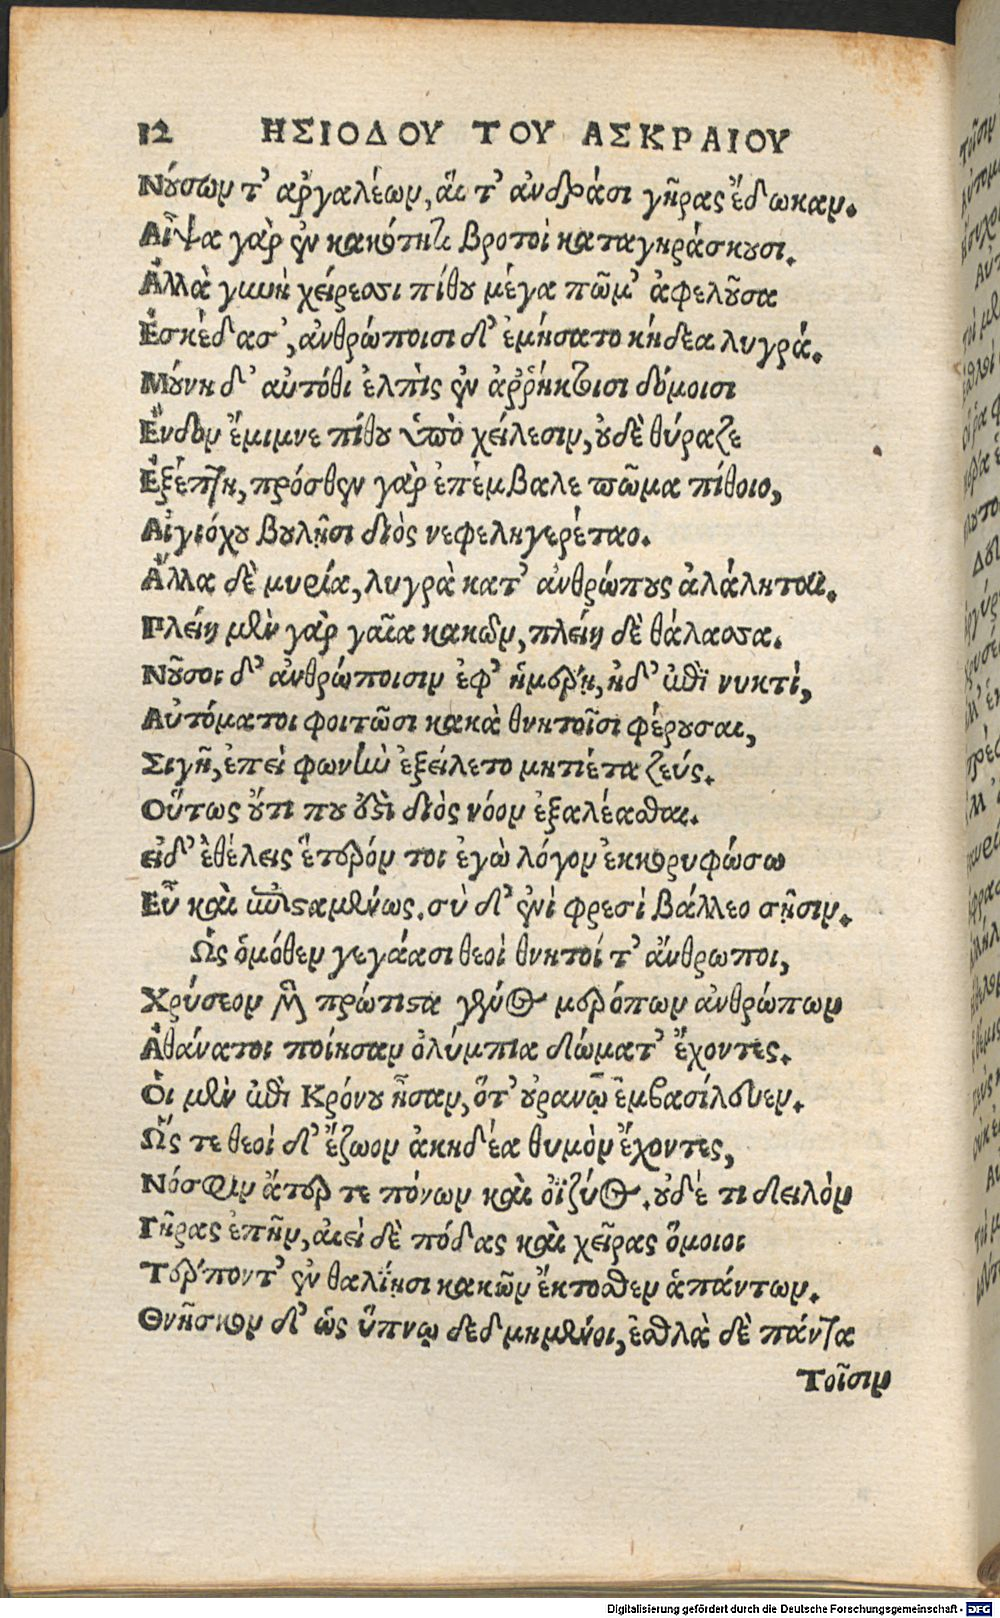 12 ΗΣΙΟΔΟΥ ΤΟΥ ΑΣΚΡΑΙΟΥ
Νούσων τ' ἀργαλέων, αἵ τ' ἀνδράσι γῆρας ἔδωκαν.
Αἶψα γὰρ ἐν κακότητι βροτοὶ καταγηράσκουσι.
Ἀλλὰ γυνὴ χείρεσσι πίθου μέγα πῶμ' ἀφελοῦσα
Ἐσκέδασ', ἀνθρώποισι δ' ἐμήσατο κήδεα λυγρά.
Μούνη δ' αὐτόθι ἐλπὶς ἐν ἀῤῥήκτοισι δόμοισι
Ἔνδον ἔμιμνε πίθου ὑπὸ χείλεσιν, οὐδὲ θύραζε
Ἐξέπτη, πρόσθεν γὰρ ἐπέμβαλε πῶμα πίθοιο,
Αἰγιόχου βουλῇσι διὸς νεφεληγερέταο.
Ἄλλα δὲ μυρία, λυγρὰ κατ' ἀνθρώπους ἀλάληται.
Πλείη μὲν γὰρ γαῖα κακῶν, πλείη δὲ θάλασσα.
Νοῦσοι δ' ἀνθρώποισιν ἐφ' ἡμέρῃ, ἠδ' ἐπὶ νυκτί,
Αὐτόματοι φοιτῶσι κακὰ θνητοῖσι φέρουσαι,
Σιγῇ, ἐπεί φωνὴν ἐξείλετο μητιέτα ζεύς.
Οὕτως οὔτι που ἐστὶ διὸς νόον ἐξαλέασθαι.
εἰ δ' ἐθέλεις ἕτερόν τοι ἐγὼ λόγον ἐκκορυφώσω
Εὖ καὶ ἐπισταμένως. σὺ δ' ἐνὶ φρεσὶ βάλλεο σῇσιν.
Ὡς ὁμόθεν γεγάασι θεοὶ θνητοί τ' ἄνθρωποι,
Χρύσεον μὲν πρώτιστα γένος μερόπων ἀνθρώπων
Ἀθάνατοι ποίησαν ὀλύμπια δώματ' ἔχοντες.
Οἱ μὲν ἐπὶ Κρόνου ἦσαν, ὅτ' οὐρανῷ ἐμβασίλευεν.
Ὥς τε θεοὶ δ' ἔζωον ἀκηδέα θυμὸν ἔχοντες,
Νόσφιν ἄτερ τε πόνων καὶ ὀϊζύος. οὐδέ τι δειλὸν
Γῆρας ἐπῆν, αἰεὶ δὲ πόδας καὶ χεῖρας ὅμοιοι
Τέρποντ' ἐν θαλίῃσι κακῶν ἔκτοσθεν ἁπάντων.
Θνῆσκον δ' ὡς ὕπνῳ δεδμημένοι, ἐσθλὰ δὲ πάντα
Τοῖσιν
Digitalisierung gefördert durch die Deutsche Forschungsgemeinschaft - DFG